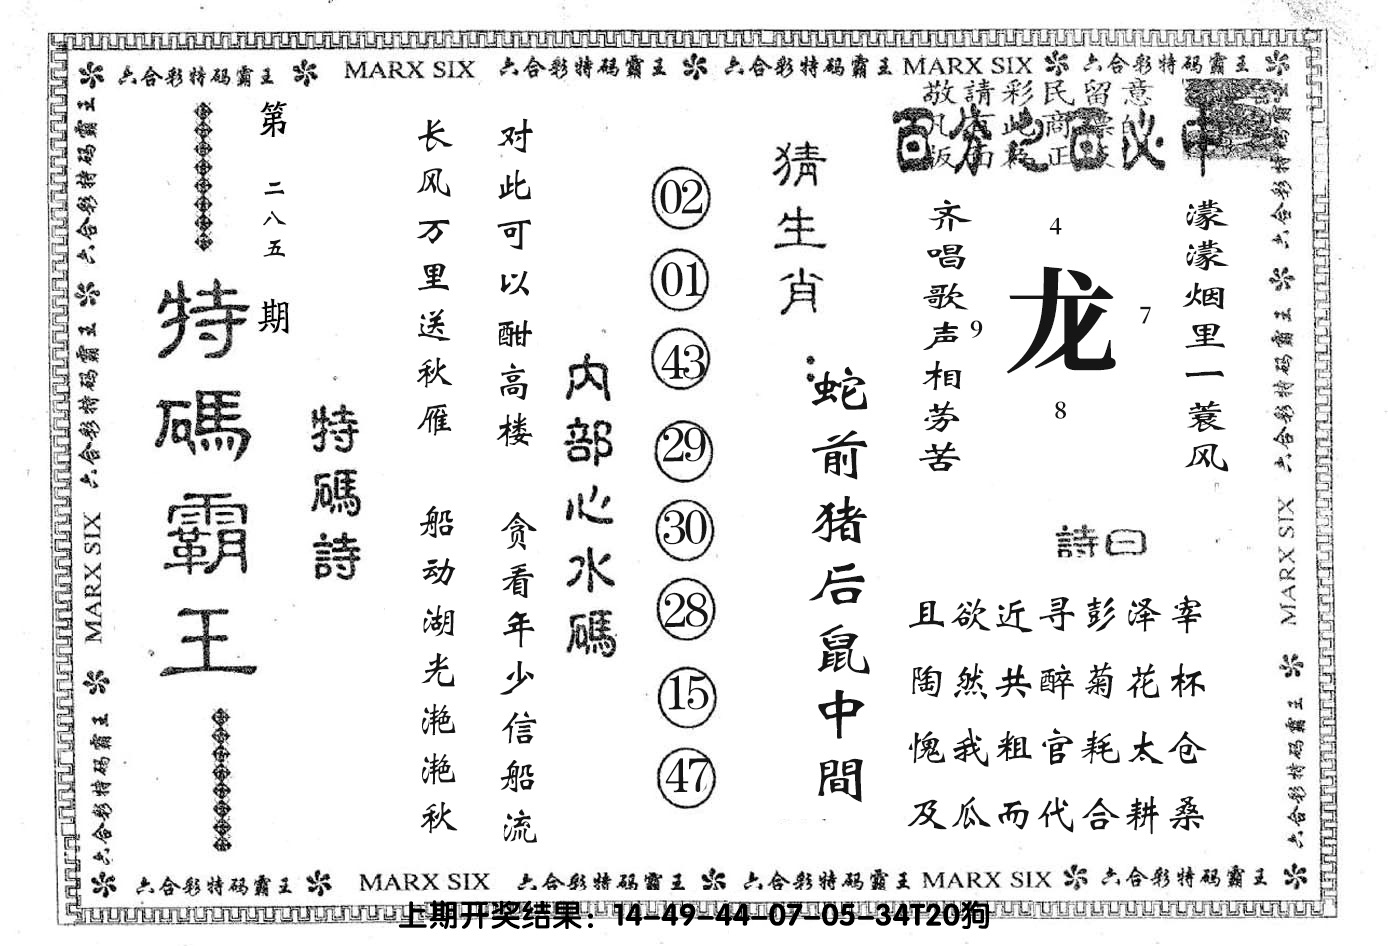 六合彩特码霸王 MARX SIX 六合彩特码霸王 六合彩特码霸王 MARX SIX 六合彩特码霸王
敬請彩民留意
百分之百必中
第二八五期
特碼霸王
特碼詩
长风万里送秋雁
对此可以酣高楼
船动湖光滟滟秋
贪看年少信船流
内部心水碼
02
01
43
29
30
28
15
47
猜生肖:
蛇前猪后鼠中間
齐唱歌声相劳苦
4
9
龙
7
8
濛濛烟里一蓑风
詩曰
且欲近寻彭泽宰
陶然共醉菊花杯
愧我粗官耗太仓
及瓜而代合耕桑
六合彩特码霸王 MARX SIX 六合彩特码霸王
六合彩特码霸王 MARX SIX 六合彩特码霸王
六合彩特码霸王 MARX SIX 六合彩特码霸王 六合彩特码霸王 MARX SIX 六合彩特码霸王
上期开奖结果：14-49-44-07-05-34T20狗